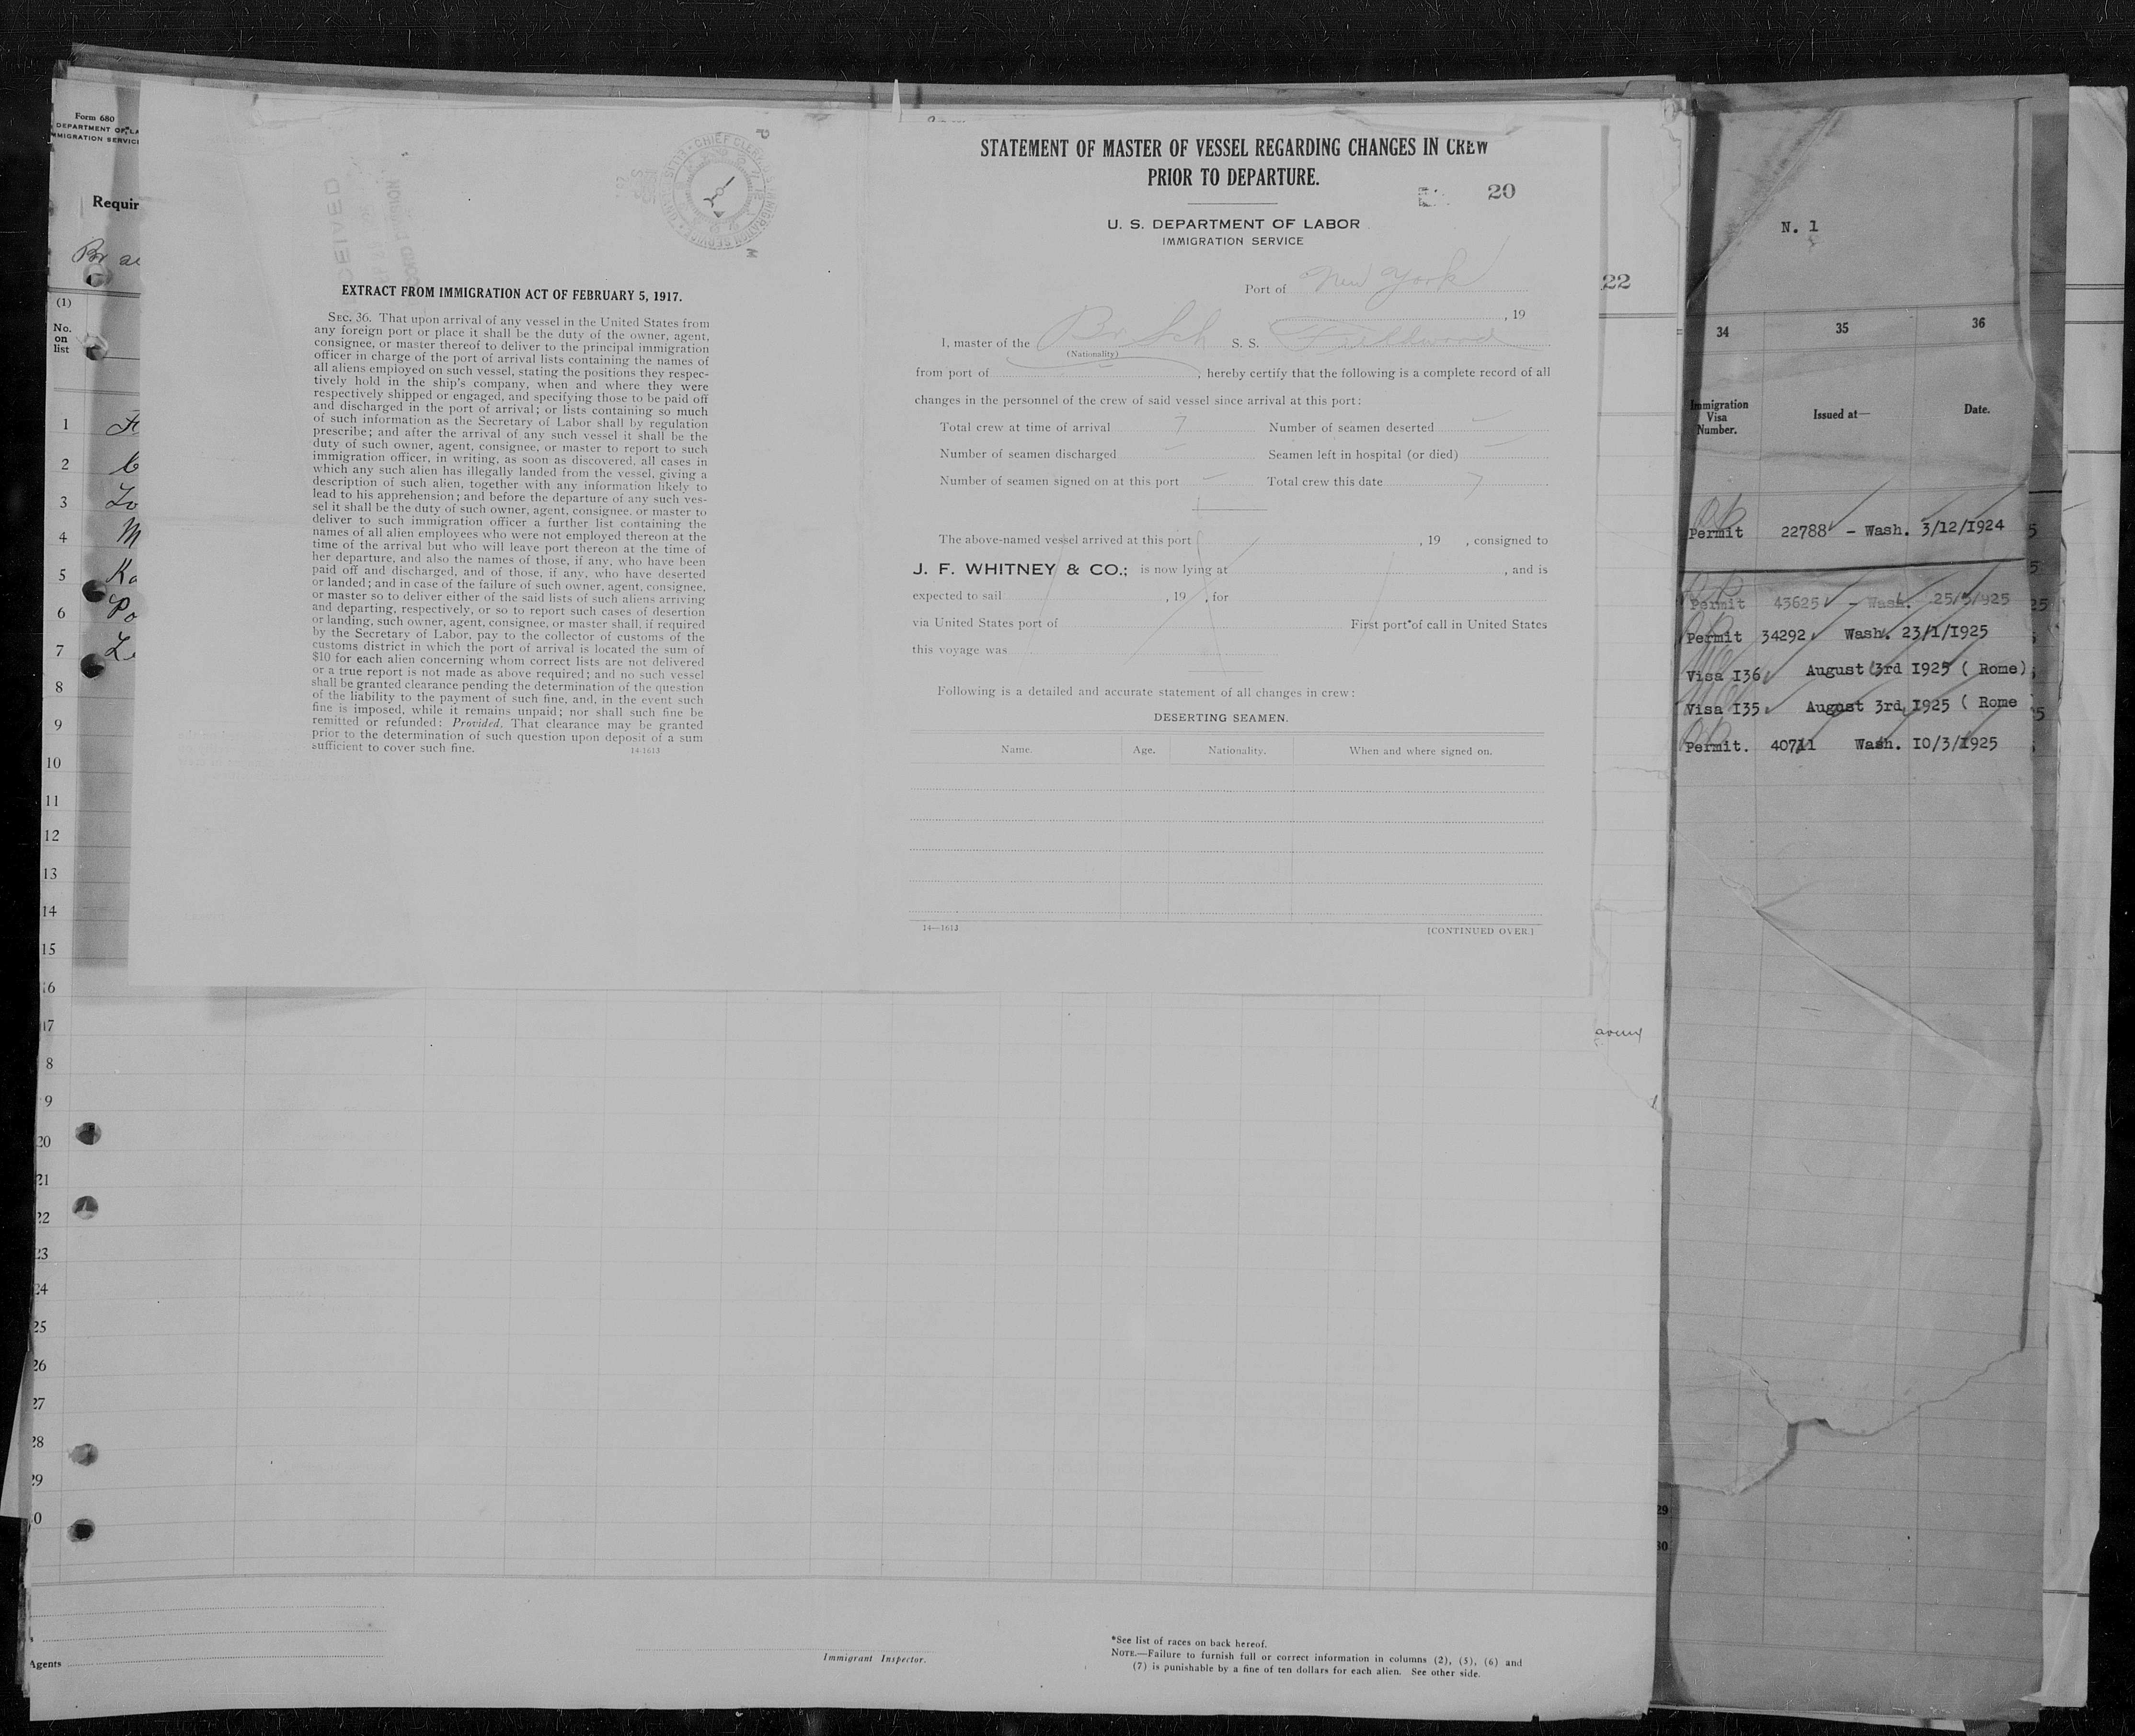 Form 680
DEPARTMENT OF LA
MIGRATION SERVICE
Requir
Br
(1)
No.
on
list
1
2
3
4 M
5 Ka
6 Po
7
8
9
10
11
12
13
14
15
16
17
8
9
20
21
22
23
24
25
26
27
28
29
0
Agents
CHIEF CLERK
IMMIGRATION SERVICE
P
M
EXTRACT FROM IMMIGRATION ACT OF FEBRUARY 5, 1917.
SEC. 36. That upon arrival of any vessel in the United States from
any foreign port or place it shall be the duty of the owner, agent,
consignee, or master thereof to deliver to the principal immigration
officer in charge of the port of arrival lists containing the names of
all aliens employed on such vessel, stating the positions they respec-
tively hold in the ship's company, when and where they were
respectively shipped or engaged, and specifying those to be paid off
and discharged in the port of arrival; or lists containing so much
of such information as the Secretary of Labor shall by regulation
prescribe; and after the arrival of any such vessel it shall be the
duty of such owner, agent, consignee, or master to report to such
immigration officer, in writing, as soon as discovered, all cases in
which any such alien has illegally landed from the vessel, giving a
description of such alien, together with any information likely to
lead to his apprehension; and before the departure of any such ves-
sel it shall be the duty of such owner, agent, consignee. or master to
deliver to such immigration officer a further list containing the
names of all alien employees who were not employed thereon at the
time of the arrival but who will leave port thereon at the time of
her departure, and also the names of those, if any, who have been
paid off and discharged, and of those, if any, who have deserted
or landed; and in case of the failure of such owner, agent, consignee,
or master so to deliver either of the said lists of such aliens arriving
and departing, respectively, or so to report such cases of desertion
or landing, such owner, agent, consignee, or master shall, if required
by the Secretary of Labor, pay to the collector of customs of the
customs district in which the port of arrival is located the sum of
$10 for each alien concerning whom correct lists are not delivered
or a true report is not made as above required; and no such vessel
shall be granted clearance pending the determination of the question
of the liability to the payment of such fine, and, in the event such
fine is imposed, while it remains unpaid; nor shall such fine be
remitted or refunded: Provided, That clearance may be granted
prior to the determination of such question upon deposit of a sum
sufficient to cover such fine. 14-1613
STATEMENT OF MASTER OF VESSEL REGARDING CHANGES IN CREW
PRIOR TO DEPARTURE.
20
U. S. DEPARTMENT OF LABOR
IMMIGRATION SERVICE
Port of New York
, 19
I, master of the Br Sch S. S. Fieldwood
(Nationality)
from port of , hereby certify that the following is a complete record of all
changes in the personnel of the crew of said vessel since arrival at this port:
Total crew at time of arrival 7 Number of seamen deserted –
Number of seamen discharged – Seamen left in hospital (or died) –
Number of seamen signed on at this port – Total crew this date 7
The above-named vessel arrived at this port , 19 , consigned to
J. F. WHITNEY & CO.; is now lying at , and is
expected to sail , 19 , for
via United States port of First port of call in United States
this voyage was
Following is a detailed and accurate statement of all changes in crew:
DESERTING SEAMEN.
Name. Age. Nationality. When and where signed on.
14—1613 [CONTINUED OVER.]
22
Immigrant Inspector.
*See list of races on back hereof.
NOTE.—Failure to furnish full or correct information in columns (2), (5), (6) and
(7) is punishable by a fine of ten dollars for each alien. See other side.
N. 1
34 35 36
Immigration
Visa
Number.
Issued at—
Date.
Permit 22788 - Wash. 3/12/1924
Permit 43625 - Wash. 25/5/925
Permit 34292 Wash. 23/1/1925
Visa I36 August 3rd 1925 ( Rome)
Visa I35 August 3rd 1925 ( Rome
Permit. 40711 Wash. 10/3/1925
29
30